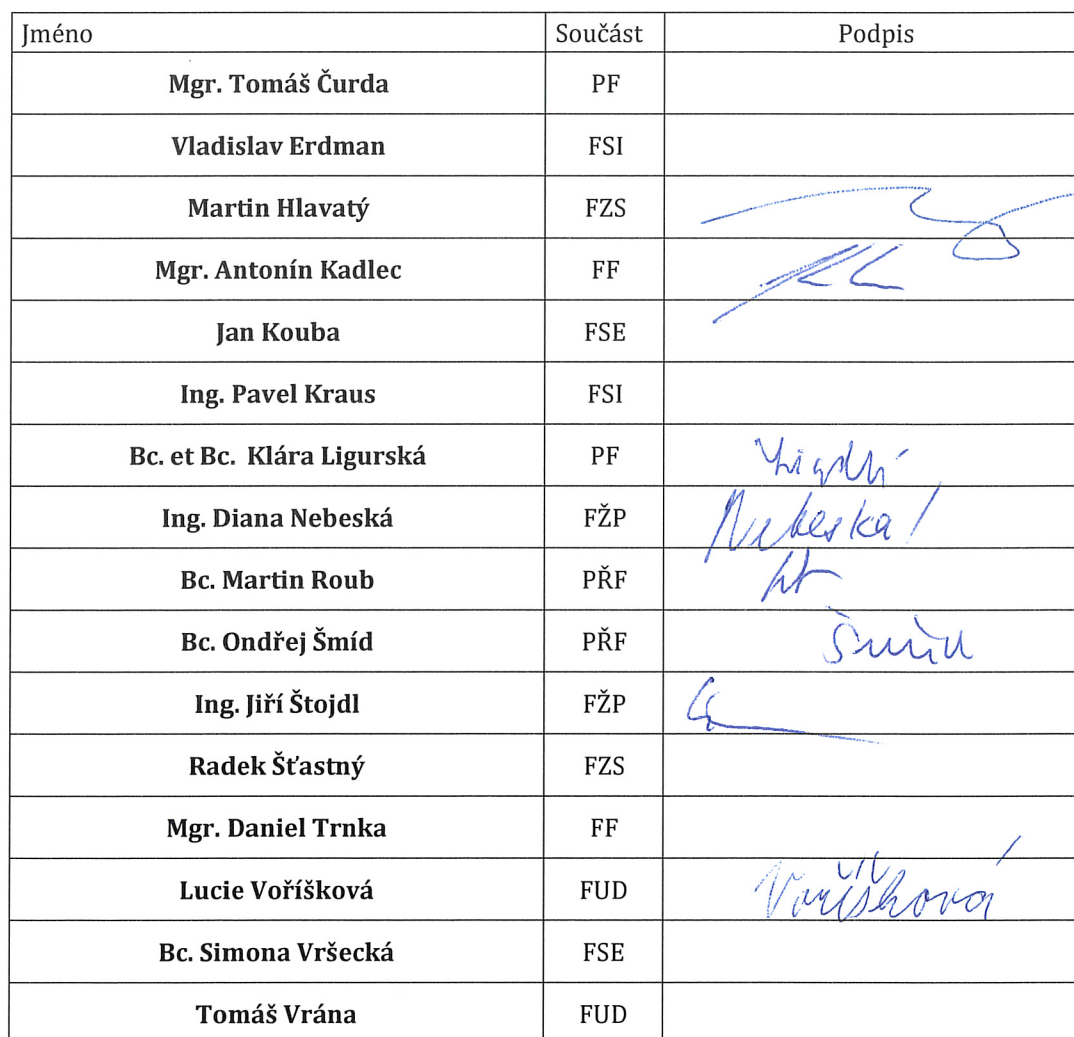 Jméno Součást Podpis
Mgr. Tomáš Čurda PF
Vladislav Erdman FSI
Martin Hlavatý FZS
Mgr. Antonín Kadlec FF
Jan Kouba FSE
Ing. Pavel Kraus FSI
Bc. et Bc. Klára Ligurská PF
Ing. Diana Nebeská FŽP Nebeská
Bc. Martin Roub PŘF
Bc. Ondřej Šmíd PŘF Šmíd
Ing. Jiří Štojdl FŽP
Radek Šťastný FZS
Mgr. Daniel Trnka FF
Lucie Voříšková FUD Voříšková
Bc. Simona Vršecká FSE
Tomáš Vrána FUD